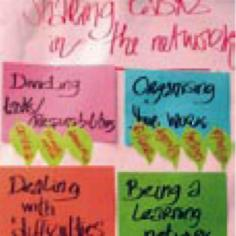 Sharing tasks
in the network
Dividing
tasks/
Responsibilities
Organising
the work
Dealing
with
difficulties
Being a
Learning
network